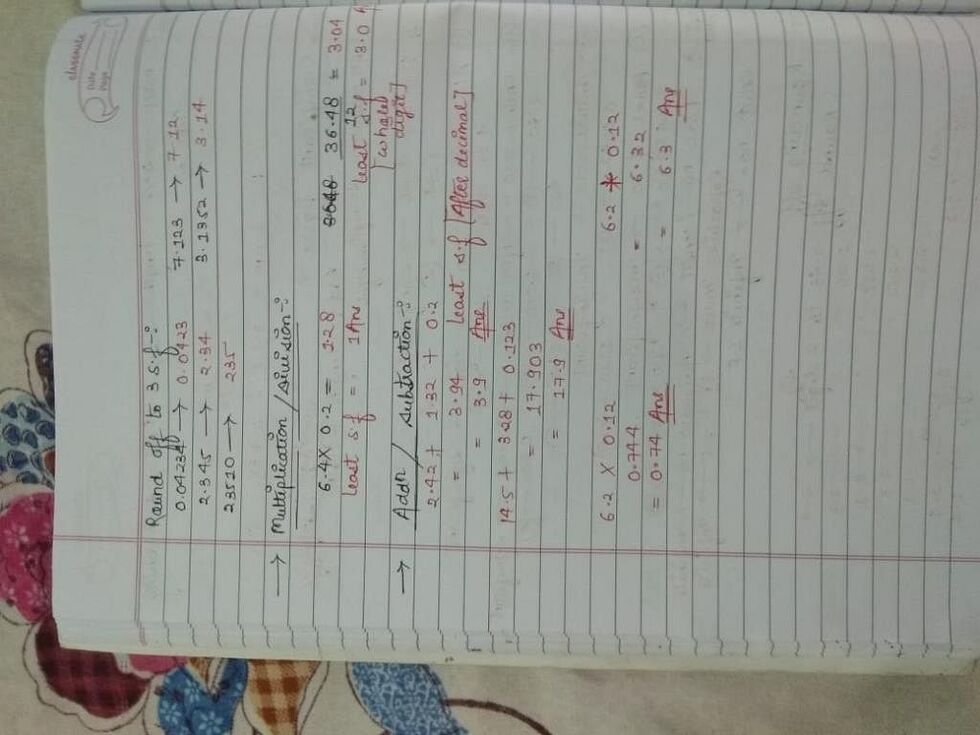 classmate
Date
Page
Round off to 3 s.f -:
0.04234 → 0.0423 7.123 → 7.12
2.345 → 2.34 3.1352 → 3.14
23510 → 235
→ Multiplication / division -:
6.4 X 0.2 = 1.28 36.48 = 3.04
12
Least s.f = 1 Ans Least s.f = 3.0 A
[whole digit]
→ Addn / substraction -:
2.42 + 1.32 + 0.2
= 3.94 Least s.f [After decimal]
= 3.9 Ans
14.5 + 3.28 + 0.123
= 17.903
= 17.9 Ans
6.2 X 0.12 6.2 + 0.12
0.744 = 6.32
= 0.74 Ans = 6.3 Ans